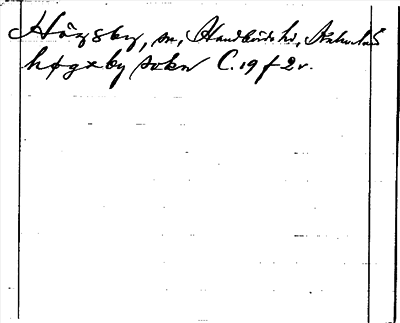 Högsby, sn, Handbörds hd, Kalm. län
høgxby sokn C. 19 f 2 v.